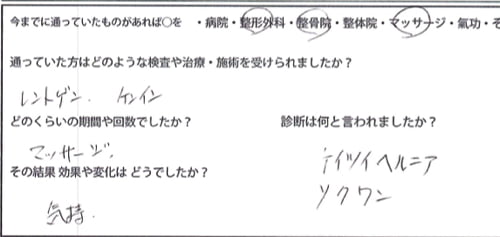 今までに通っていたものがあれば○を ・病院・整形外科・整骨院・整体院・マッサージ・氣功・そ
通っていた方はどのような検査や治療・施術を受けられましたか？
レントゲン. ケンイン
どのくらいの期間や回数でしたか？ 診断は何と言われましたか？
マッサージ. テイツイヘルニア
その結果 効果や変化は どうでしたか？ ソクワン
気持.